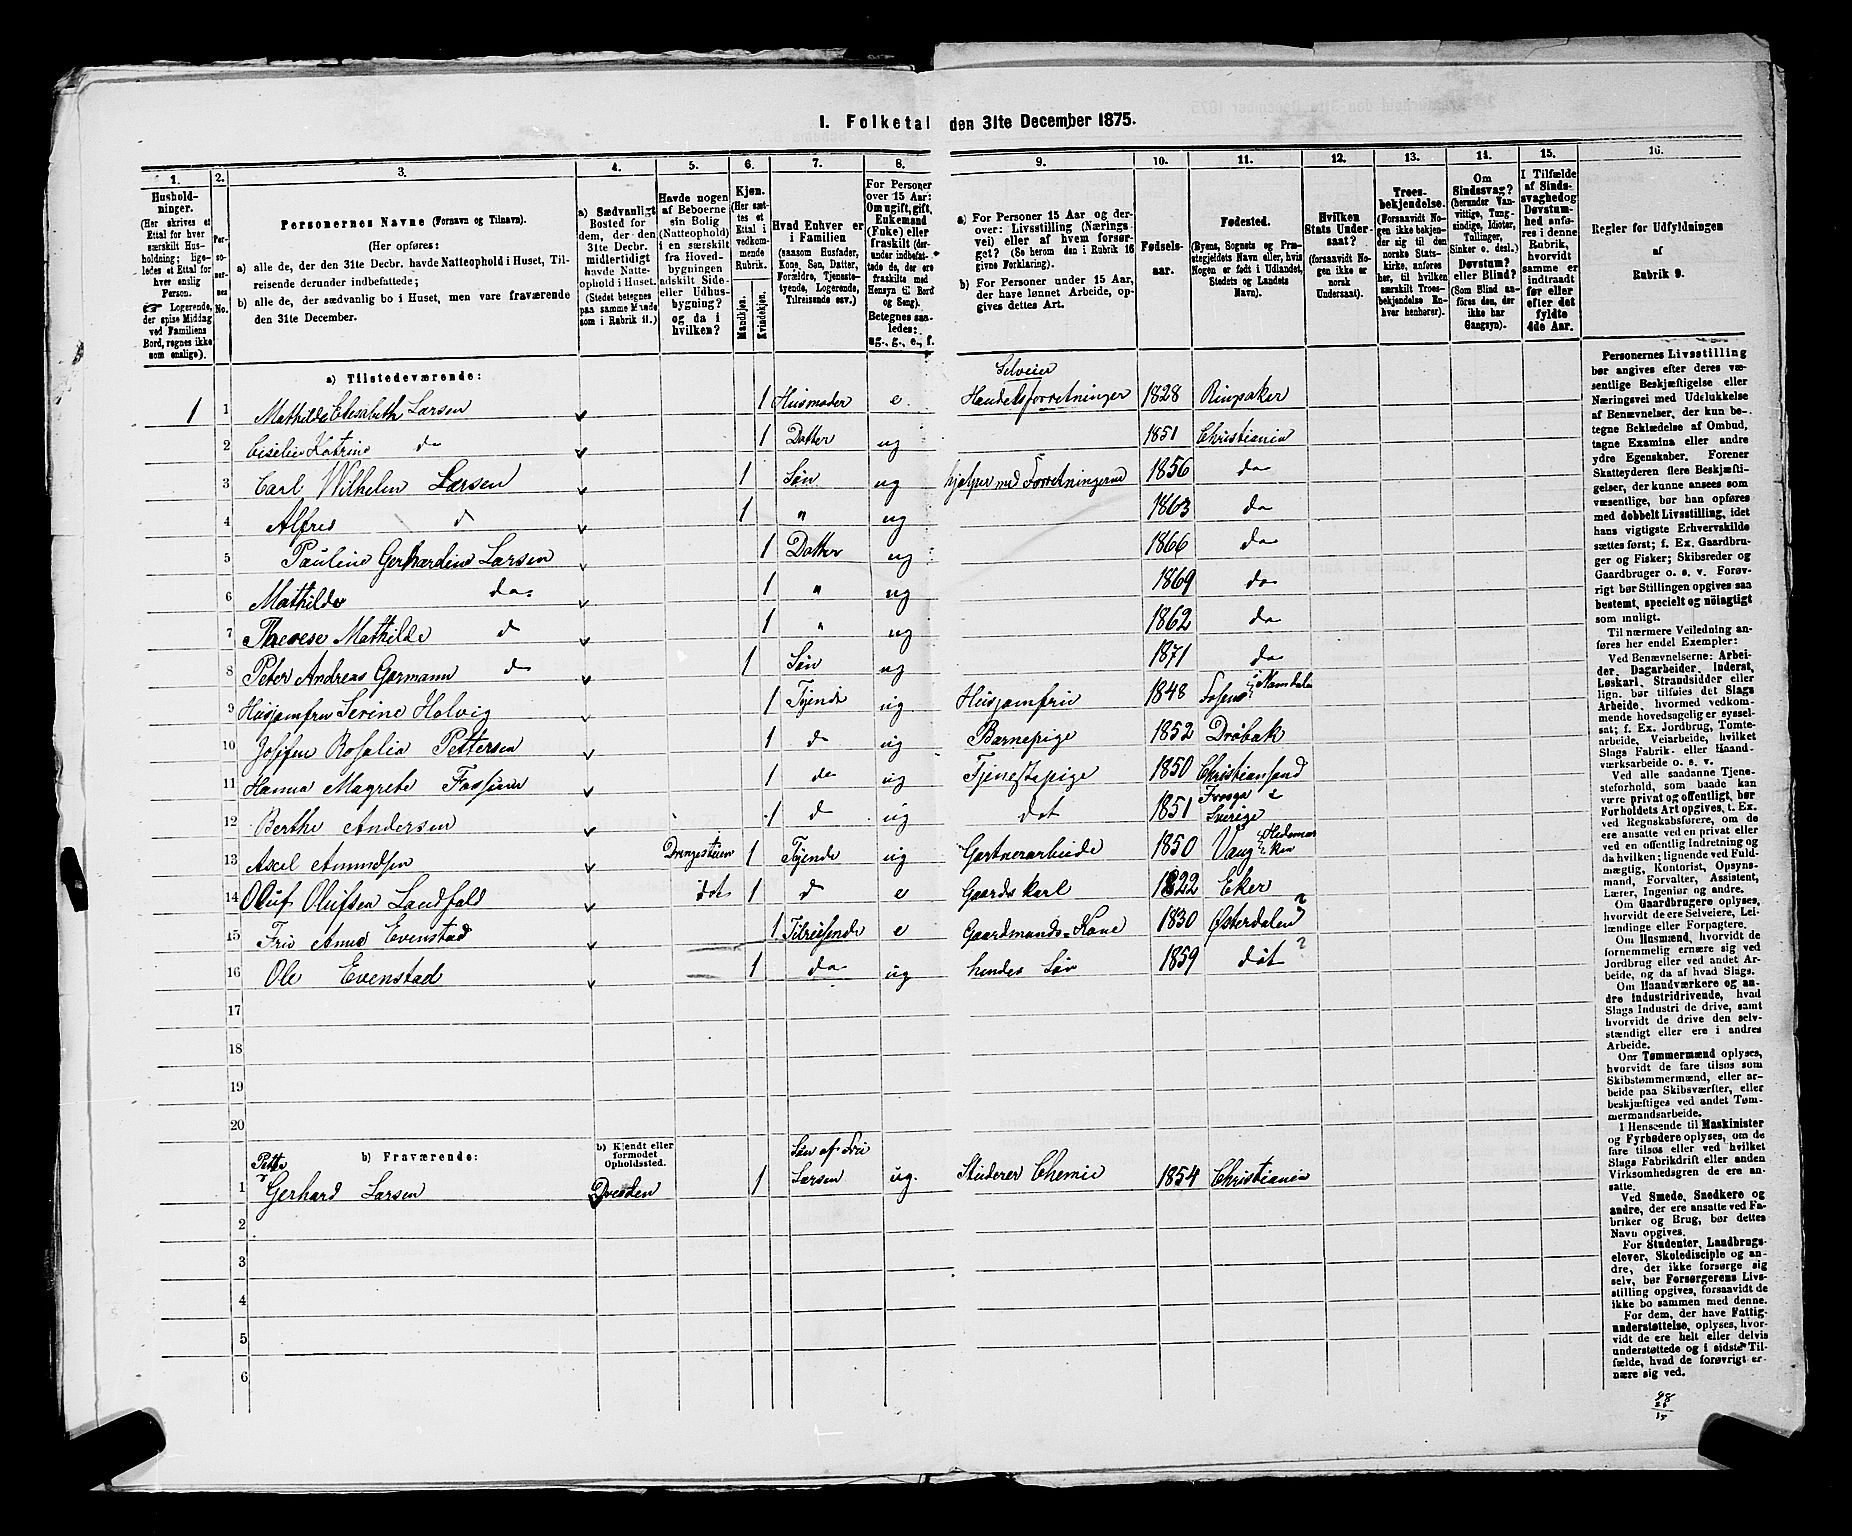 I. Folketal den 31te December 1875.
1. 2. 3. 4. 5. 6. 7. 8. 9. 10. 11. 12. 13. 14. 15. 16.
Hushold-
ninger.
(Her skrives et
Ettal for hver
særskilt Hus-
holdning; lige-
ledes et Ettal for
hver enslig
Person.
☞ Logerende,
der spise Middag
ved Familiens
Bord, regnes ikke
som enslige).
Per-
so-
ner-
nes
No.
Personernes Navne (Fornavn og Tilnavn).
(Her opføres:
a) alle de, der den 31te Decbr. havde Natteophold i Huset, Til-
reisende derunder indbefattede;
b) alle de, der sædvanlig bo i Huset, men vare fraværende
den 31te December.
a) Sædvanligt
Bosted for
dem, der den
31te Decbr.
midlertidigt
havde Natte-
ophold i Huset.
(Stedet betegnes
paa samme Maade
som i Rubrik 11.)
Havde nogen
af Beboerne
sin Bolig
(Natteophold)
i en særskilt
fra Hoved-
bygningen
adskilt Side-
eller Udhus-
bygning?
og da i
hvilken?
Kjøn.
(Her sæt-
tes et
Ettal i
vedkom-
mende
Rubrik.
Mandkjøn.
Kvindekjøn.
Hvad Enhver er
i Familien
(saasom Husfader,
Kone, Søn, Datter,
Forældre, Tjeneste-
tyende, Logerende,
Tilreisende osv.)
For Personer
over 15 Aar:
Om ugift, gift,
Enkemand
(Enke) eller
fraskilt (der-
under indbefat-
tede de, der ere
fraskilte med
Hensyn til Bord
og Seng).
Betegnes saa-
ledes:
ug., g., e., f.
a) For Personer 15 Aar og der-
over: Livsstilling (Nærings-
vei) eller af hvem forsør-
get? (Se herom den i Rubrik 16
givne Forklaring).
b) For Personer under 15 Aar,
der have lønnet Arbeide, op-
gives dettes Art.
Fødsels-
aar.
Fødested.
(Byens, Sognets og Præ-
stegjeldets Navn eller, hvis
Nogen er født i Udlandet,
Stedets og Landets
Navn).
Hvilken
Stats Under-
saat?
(forsaavidt No-
gen ikke er
norsk
Undersaat).
Troes-
bekjendelse.
(Forsaavidt No-
gen ikke bekjen-
der sig til den
norske Stats-
kirke, anføres
her, til hvilken
særskilt Troes-
bekjendelse En-
hver henhører).
Om
Sindssvag?
(herunder Van-
vittige, Tung-
sindige, Idioter,
Tullinger,
Sinker o. desl.)
Døvstum?
eller Blind?
(Som Blind an-
føres den, der
ikke har
Gangsyn).
I Tilfælde
af Sinds-
svaghed og
Døvstum-
hed anfø-
res i denne
Rubrik,
hvorvidt
samme er
indtraadt
før eller
efter det
fyldte
4de Aar.
Regler for Udfyldningen
af
Rubrik 9.
a) Tilstedeværende:
Selveier
1 1 Mathilde Elisabeth Larsen 1 Husmoder e Handelsforretninger 1828 Ringsaker
2 Ciselie Katrine do 1 Datter ug 1851 Christiania
3 Carl Wilhelm Larsen 1 Søn ug hjelper med Forretningerne 1856 do
4 Alfred d 1 " ug 1863 do
5 Pauline Gerhardine Larsen 1 Datter ug 1866 do
6 Mathilde do 1 " ug 1869 do
7 Therese Mathilde d 1 " ug 1862 do
8 Peter Andreas Germann do 1 Søn ug 1871 do
9 Husjomfru Serine Holvig 1 Tjende ug Husjomfru 1848 Fosens i Namdalen
10 Josefine Rosalia Pettersen 1 d ug Barnepige 1852 Drøbak
11 Hanna Magrete 1 do ug Tjenestepige 1850 Christiansand
12 Berthe Andersen 1 d ug dot 1851 Sverige
13 Axel Amundsen Drengestuen 1 Tjende ug Gartnerarbeide 1850 Vang Hedemarken
14 Oluf Olufsen Landfald dot 1 d e Gaardskarl 1822 Eker
15 Fru Anne Evenstad 1 Tilreisende e Gaardmands-Kone 1830 Østerdalen ?
16 Ole Evenstad 1 do ug hendes Søn 1859 dot ?
17
18
19
20
b) Fraværende:
b) Kjendt eller
formodet
Opholdssted.
Søn af Fru
1 Petter Gerhard Larsen Dresden 1 Larsen ug. Studerer Chemie 1854 Christiania
2
3
4
5
6
Personernes Livsstilling
bør angives efter deres væ-
sentlige Beskjæftigelse eller
Næringsvei med Udelukkelse
af Benævnelser, der kun be-
tegne Beklædelse af Ombud,
tagne Examina eller andre
ydre Egenskaber. Forener
Skatteyderen flere Beskjæfti-
gelser, der kunne ansees som
væsentlige, bør han opføres
med dobbelt Livsstilling, idet
hans vigtigste Erhvervskilde
sættes først; f. Ex. Gaardbru-
ger og Fisker; Skibsreder og
Gaardbruger o. s. v. Forøv-
rigt bør Stillingen opgives saa
bestemt, specielt og nøiagtigt
som muligt.
Til nærmere Veiledning an-
føres her endel Exempler:
Ved Benævnelserne: Arbei-
der, Dagarbeider, Inderst,
Løskarl, Strandsidder eller
lign. bør tilføies det Slags
Arbeide, hvormed vedkom-
mende hovedsagelig er syssel-
sat; f. Ex. Jordbrug, Tomte-
arbeide, Veiarbeide, hvilket
Slags Fabrik- eller Haand-
værksarbeide o. s. v.
Ved alle saadanne Tjene-
steforhold, som baade kan
være privat og offentligt, bør
Forholdets Art opgives, t. Ex.
ved Regnskabsførere, om de
ere ansatte ved en privat eller
ved en offentlig Indretning og
da hvilken; lignende ved Fuld-
mægtig, Kontorist, Opsyns-
mand, Forvalter, Assistent,
Lærer, Ingeniør og andre.
Om Gaardbrugere oplyses,
hvorvidt de ere Selveiere, Lei-
lændinge eller Forpagtere.
Om Husmænd, hvorvidt de
fornemmelig ernære sig ved
Jordbrug eller ved andet Ar-
beide, og da af hvad Slags.
Om Haandværkere og an-
dre industridrivende, hvad
Slags Industri de drive, samt
hvorvidt de drive den selv-
stændigt eller ere i andres
Arbeide.
Om Tømmermænd oplyses,
hvorvidt de fare tilsøs som
Skibstømmermænd, eller ar-
beide paa Skibsværfter, eller
beskjæftiges ved andet Tøm-
mermandsarbeide.
I Henseende til Maskinister
og Fyrbødere oplyses, om de
fare tilsøs eller ved hvilket
Slags Fabrikdrift eller anden
Virksomhedsgren de ere an-
satte.
Ved Smede, Snedkere og
andre, der ere ansatte ved Fa-
briker og Brug, bør dettes
Navn opgives.
For Studenter, Landbrugs-
elever, Skoledisciple og an-
dre, der ikke forsørge sig
selv, bør Forsørgerens Livs-
stilling opgives, forsaavidt de
ikke bo sammen med denne.
For dem, der have Fattig-
understøttelse, oplyses, hvor-
vidt de ere helt eller delvis
understøttede og i sidste Til-
fælde, hvad de forøvrigt er-
nære sig ved.